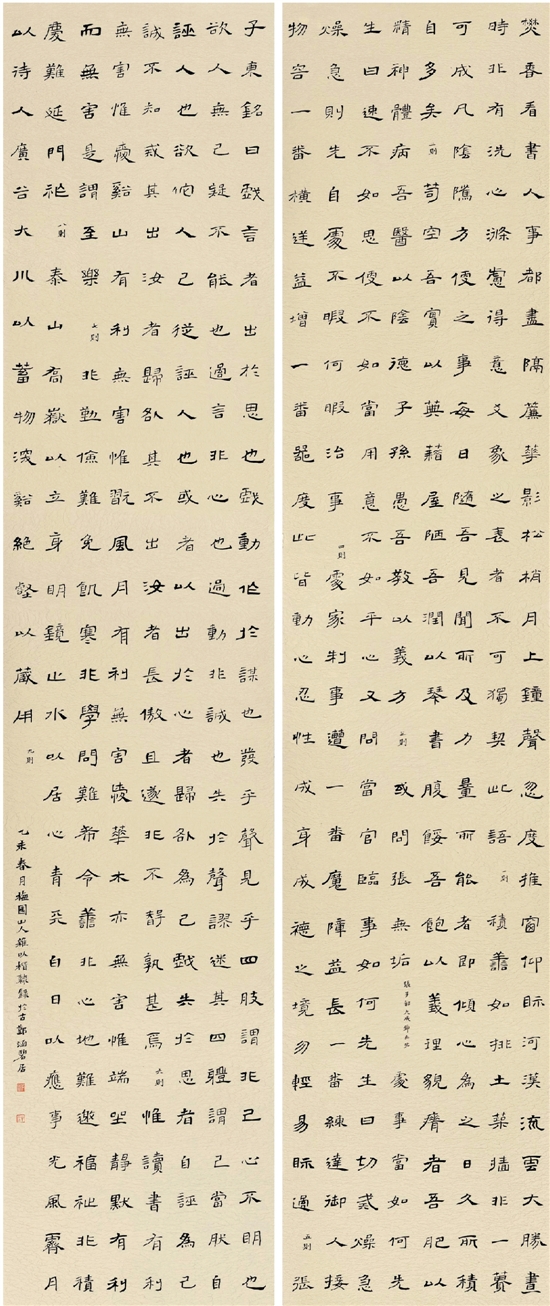 焚香看書人事都盡隔簾華影松梢月上鐘聲忽度推窗仰眎河漢流雲大勝晝
時非有洗心滌慮得意爻象之表者不可獨契此語一則積善如排土築牆非一蕢
可成凡陰騭方便之事每日隨吾見聞所及力量所能者即傾心為之日久所積
自多矣二則苟空吾實以典藉屋陋吾潤以琴書腹餒吾飽以義理貌癠者吾肥以
精神體病吾醫以陰德子孫愚吾教以義方三則或問張無垢處事當如何先
生曰速不如思便不如當用意不如平心又問當官臨事如何先生曰切戒燥急
燥急則先自處不暇何暇治事四則處家制事遭一番魔障益長一番練達御人接
物容一番橫逆益增一番器度此皆動心忍性成身成德之境勿輕易眎過五則張
子東銘曰戲言者出於思也戲動作於謀也發乎聲見乎四肢謂非己心不明也
欲人無己疑不能也過言非心也過動非誠也失於聲謬迷其四體謂己當肰自
誣人也欲佗人己從誣人也或者以出於心者歸咎為己戲失於思者自誣為己
誠不知戒其出汝者歸咎其不出汝者長傲且遂非不智孰甚焉六則惟讀書有利
無害惟谿山有利無害惟翫風月有利無害華木亦無害惟端坐靜默有利
而無害是謂至樂七則非勤儉難免飢寒非學問難希令善非心地難邀福祉非積
慶難延門祚八則泰山高嶽以立身明鏡止水以居心青天白日以應事光風霽月
以待人廣谷大川以蓄物深谿絕壑以藏用九則
乙未春月梅園山人錄於古鄮涵碧居